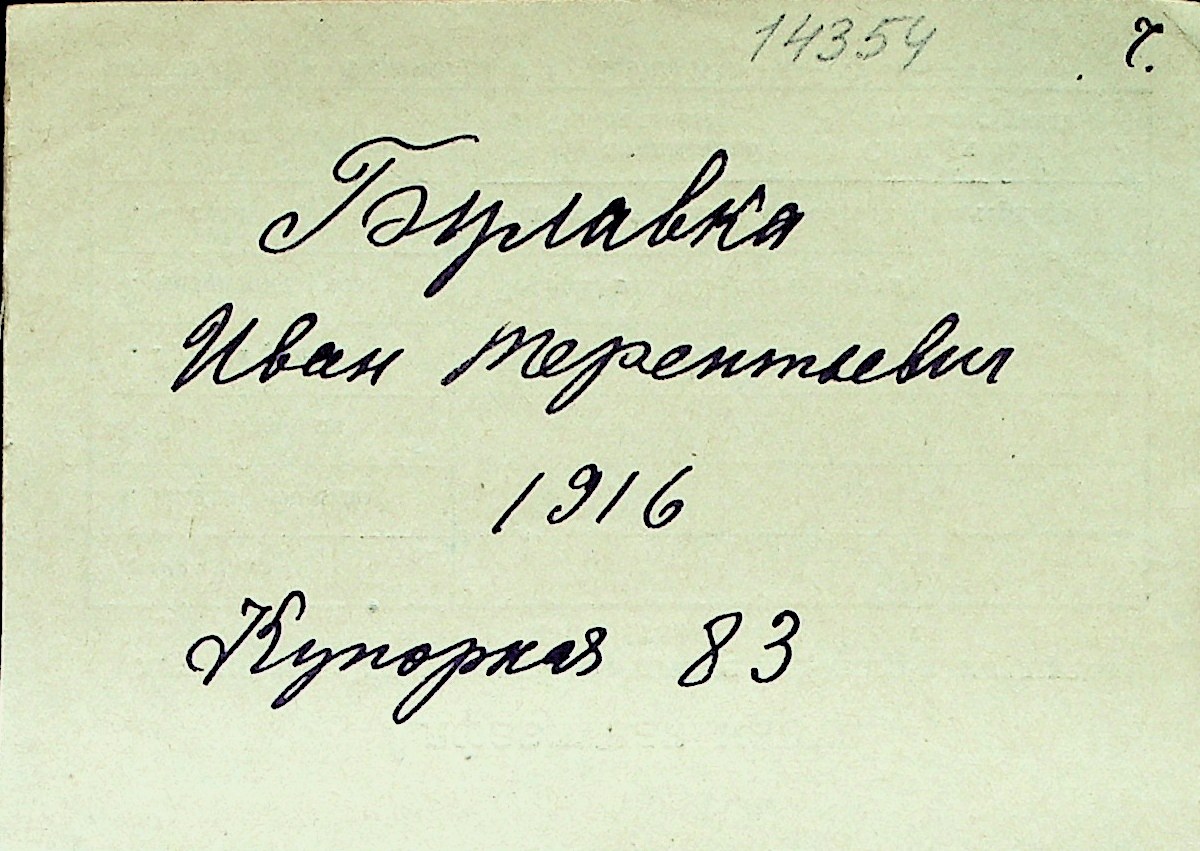 14354 ч.
Булавка
Иван Терентьевич
1916
Купоркая 83